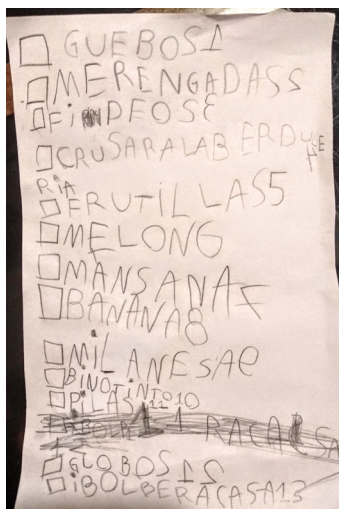 GUEBOS1
MERENGADASS
FiDEOSE
CRUSARALABERDUE
RiA
FRUTILLAS5
MELONG
MANSANA7
BANANA8
MiLANESA9
BINOTINTO10
PILAS11
GLOBOS12
iBOLBERACASA13